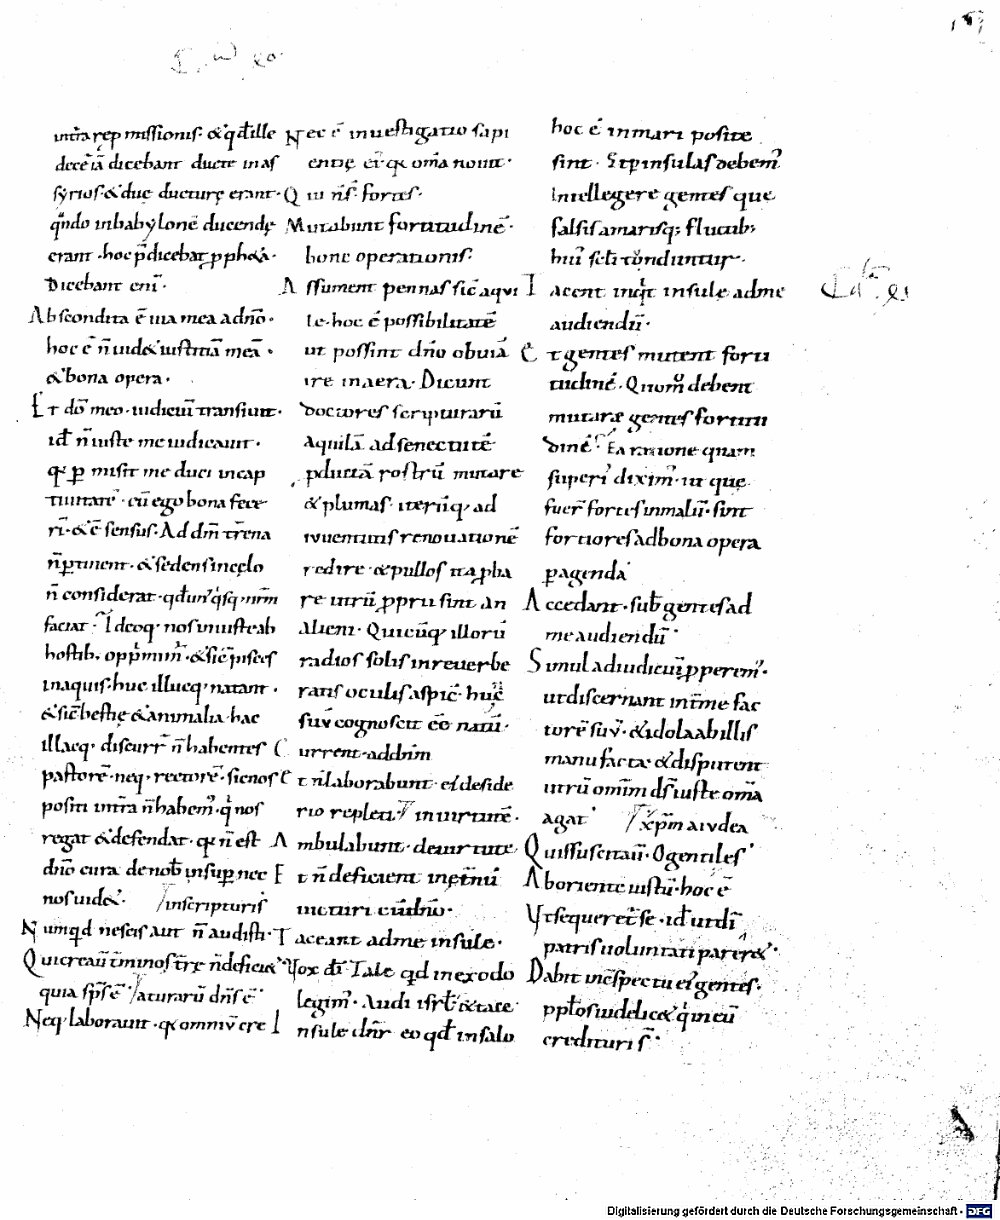 dece iã dicebant ducte in as
syrios & duc ducturę erant
qñdo in babylone ducendę
erant · hoc p̃dicebat ꝓph&a ·
Dicebant eni ·
Abscondita ẽ uia mea a dño ·
hoc ẽ ñ uid& iustitiã meã ·
& bona opera ·
Et dõ meo · iudiciũ transiuit ·
id ñ iuste me iudicauit ·
tiuitatẽ · cũ ego bona fece
rĩ · & ẽ sensus · Ad dm̃ tr̃ena
ñ ptinent · & sedens in cęlo
ñ considerat · qd
faciat · Ideoq; nos iniuste ab
in aquis · huc illucq; natant ·
& sic bestię & animalia hac
illacq; discurr̃ ñ habentes
pastorẽ neq; rectorẽ · sic nos
positi in tr̃a ñ habem̃ · q̓ nos
regat & defendat · q ñ est
dño cura de nob̃ insuper nec
nos uid& · in scripturis
Numqd nescis aut ñ audisti ·
Qui creauit t̃minos tr̃ę ñ deficiẽ
quia sps̃ ẽ
Neq; laborauit · q omniũ cre
Nec ẽ inuestigatio sapi
entię ei · q om̃a nouit ·
Qui ñ s̃ fortes ·
Mutabunt fortitudinẽ ·
bone operationis ·
Assument pennas sic aqui
le · hoc ẽ possibilitatẽ
ut possint dño obuiã
ire in aera · Dicunt
doctores scripturarũ
aquilã ad senectutẽ
ꝓductã rostrũ mutare
& plumas · iterũq; ad
iuuentutis renouationẽ
redire · & pullos ita ꝓba
re utrũ ꝓprii sint an
alieni · Quicũq; illorũ
radios solis in reuerbe
ratis oculis aspic̃ · hunc
suũ cognoscit ẽẽ natũ ·
Current · ad dñm
Et ñ laborabunt · ei deside
rio repleti / in uirtutẽ ·
Ambulabunt · de uirtute
Et ñ deficient in ęt̃nũ
uicturi cũ dño ·
Taceant ad me insule ·
Vox dĩ · Tale qd in exodo
legim̃ · Audi isrl̃ & tace
Insule dñr eo qd in salo
hoc ẽ in mari posite
sint · S; p insulas debem̃
intellegere gentes que
falsis amarisq; fluctib;
hui scl̃i tunduntur ·
Iacent inq̓t insule ad me
audiendũ ·
Et gentes mutent forti
tudinẽ · Quom̃ debent
mutare gentes fortitu
dinẽ · Ea ratione quam
superĩ dixim̃ · ut que
fuer̃ fortes in malũ · sint
fortiores ad bona opera
pagenda
Accedant · sub̃ gentes ad
me audiendũ ·
Simul ad iudiciũ ꝓperem̃ ·
ut discernant int̃ me fac
torẽ suũ · & idola ab illis
manu facta & disputent
utrũ omñm ds̃ iuste om̃a
agat · xpm̃ a iudea
Quis suscitauit · O gentiles
Ab oriente iustũ · hoc ẽ
Vt sequeret̃ se · id ut dĩ
patris uoluntati parer& ·
Dabit in c̃spectu ei gentes ·
ppl̃os iudelic& q̓ in eũ
credituri s̃ ·
Digitalisierung gefördert durch die Deutsche Forschungsgemeinschaft · DFG